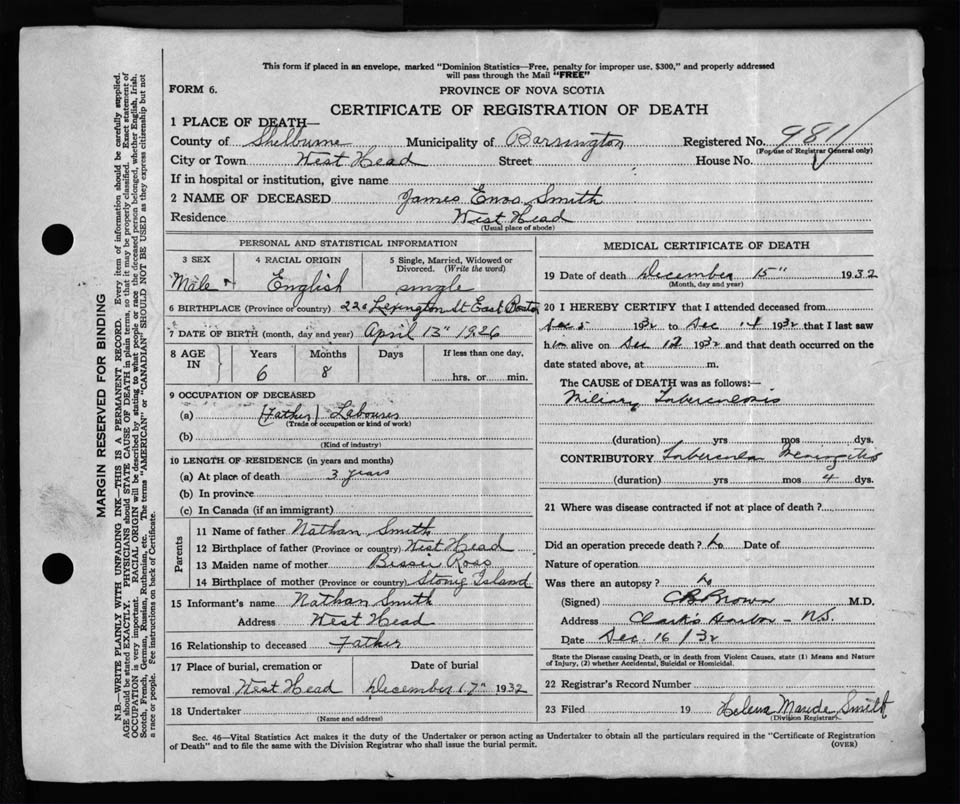 This form if placed in an envelope, marked "Dominion Statistics—Free, penalty for improper use, $300," and properly addressed
will pass through the Mail "FREE"
FORM 6.
PROVINCE OF NOVA SCOTIA
CERTIFICATE OF REGISTRATION OF DEATH
1 PLACE OF DEATH—
County of Shelburne Municipality of Barrington Registered No. 981
(For use of Registrar General only)
City or Town West Head Street House No.
If in hospital or institution, give name
2 NAME OF DECEASED James Enos Smith
Residence West Head
(Usual place of abode)
PERSONAL AND STATISTICAL INFORMATION
3 SEX 4 RACIAL ORIGIN 5 Single, Married, Widowed or
Divorced. (Write the word)
Male English single
6 BIRTHPLACE (Province or country) 220 Lexington St East Boston
7 DATE OF BIRTH (month, day and year) April 13" 1926
8 AGE IN Years Months Days If less than one day,
6 8 hrs. or min.
9 OCCUPATION OF DECEASED
(a) (Father) Labourer
(Trade or occupation or kind of work)
(b)
(Kind of industry)
10 LENGTH OF RESIDENCE (in years and months)
(a) At place of death 3 years
(b) In province
(c) In Canada (if an immigrant)
Parents
11 Name of father Nathan Smith
12 Birthplace of father (Province or country) West Head
13 Maiden name of mother Bessie Ross
14 Birthplace of mother (Province or country) Stony Island
15 Informant's name Nathan Smith
Address West Head
16 Relationship to deceased Father
17 Place of burial, cremation or Date of burial
removal West Head December 17" 1932
18 Undertaker
(Name and address)
MEDICAL CERTIFICATE OF DEATH
19 Date of death December 15" 1932
(Month, day and year)
20 I HEREBY CERTIFY that I attended deceased from
Dec 5 1932 to Dec 14 1932 that I last saw
him alive on Dec 12 1932 and that death occurred on the
date stated above, at m.
The CAUSE OF DEATH was as follows:—
Miliary Tuberculosis
(duration) yrs mos dys.
CONTRIBUTORY Tubercular Meningitis
(duration) yrs mos 4 dys.
21 Where was disease contracted if not at place of death?
Did an operation precede death? No Date of
Nature of operation
Was there an autopsy? No
(Signed) C B Brown M.D.
Address Clark's Harbor - N.S.
Date Dec 16/32
State the Disease causing Death, or in death from Violent Causes, state (1) Means and Nature
of Injury, (2) whether Accidental, Suicidal or Homicidal.
22 Registrar's Record Number
23 Filed 19 Helena Maude Smith
(Division Registrar)
Sec. 46—Vital Statistics Act makes it the duty of the Undertaker or person acting as Undertaker to obtain all the particulars required in the "Certificate of Registration
of Death" and to file the same with the Division Registrar who shall issue the burial permit. (OVER)
MARGIN RESERVED FOR BINDING
N.B.—WRITE PLAINLY WITH UNFADING INK—THIS IS A PERMANENT RECORD. Every item of information should be carefully supplied.
AGE should be stated EXACTLY. PHYSICIANS should STATE CAUSE OF DEATH in plain terms, so that it may be properly classified. Exact statement of
OCCUPATION is very important. RACIAL ORIGIN will be described by stating to what people or race the deceased person belonged, whether English, Irish,
Scotch, French, German, Russian, Ruthenian, etc. The terms "AMERICAN" or "CANADIAN" SHOULD NOT BE USED as they express citizenship but not
a race or people. See instructions on back of Certificate.